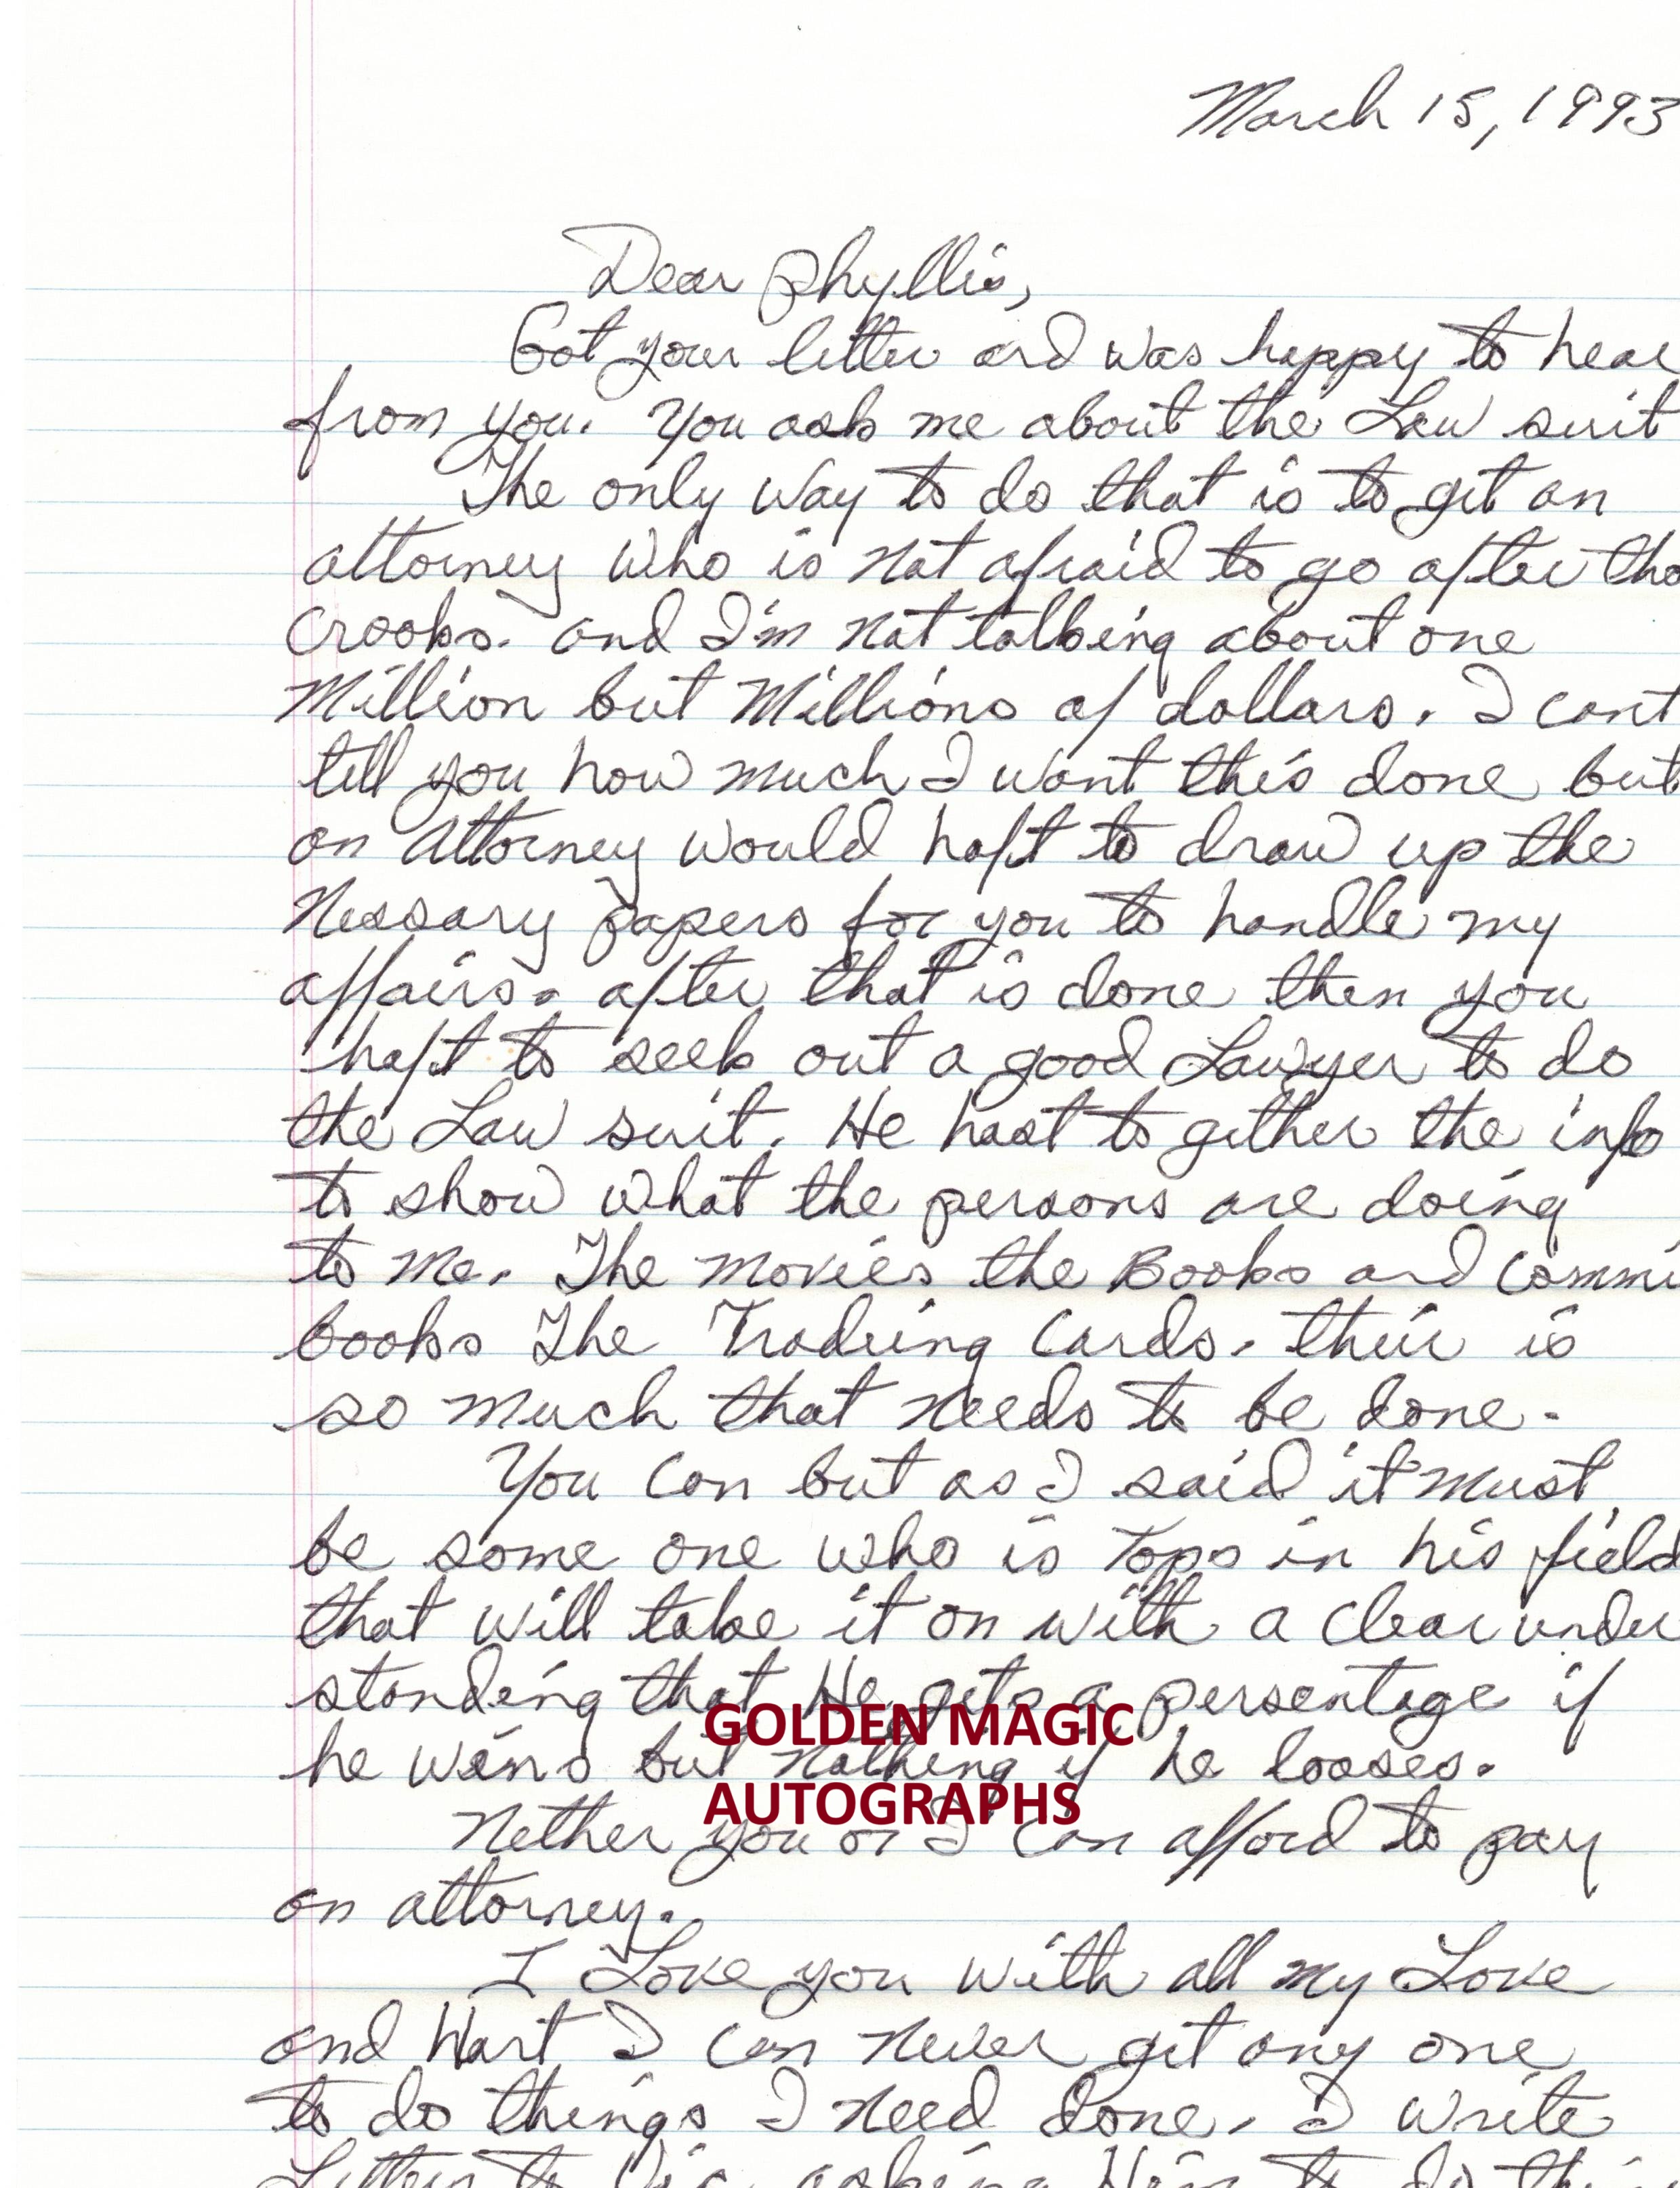 March 15, 1993
Dear Phyllis,
Got your letter and was happy to hear
from you. You ask me about the Law suit
The only way to do that is to get an
attorney who is not afraid to go after tho
crooks. and I'm not talking about one
Million but Millions of dollars. I cant
tell you how much I want this done but
an attorney would haft to draw up the
Nessary papers for you to handle my
affairs. after that is done then you
haft to seek out a good Lawyer to do
the Law suit. He hast to gether the info
to show what the persons are doing
to me. The movies the Books and commi
books The Trading Cards. their is
so much that needs to be done.
You can but as I said it must
be some one who is Tops in his field
that will take it on with a clear under
standing that He gets a persentage if
he wins but nothing if he looses.
GOLDEN MAGIC
AUTOGRAPHS
Nether you or I can afford to pay
an attorney.
I Love you with all my Love
and Hart I can never get any one
to do things I need done. I write
Letters to Vic asking Him to do